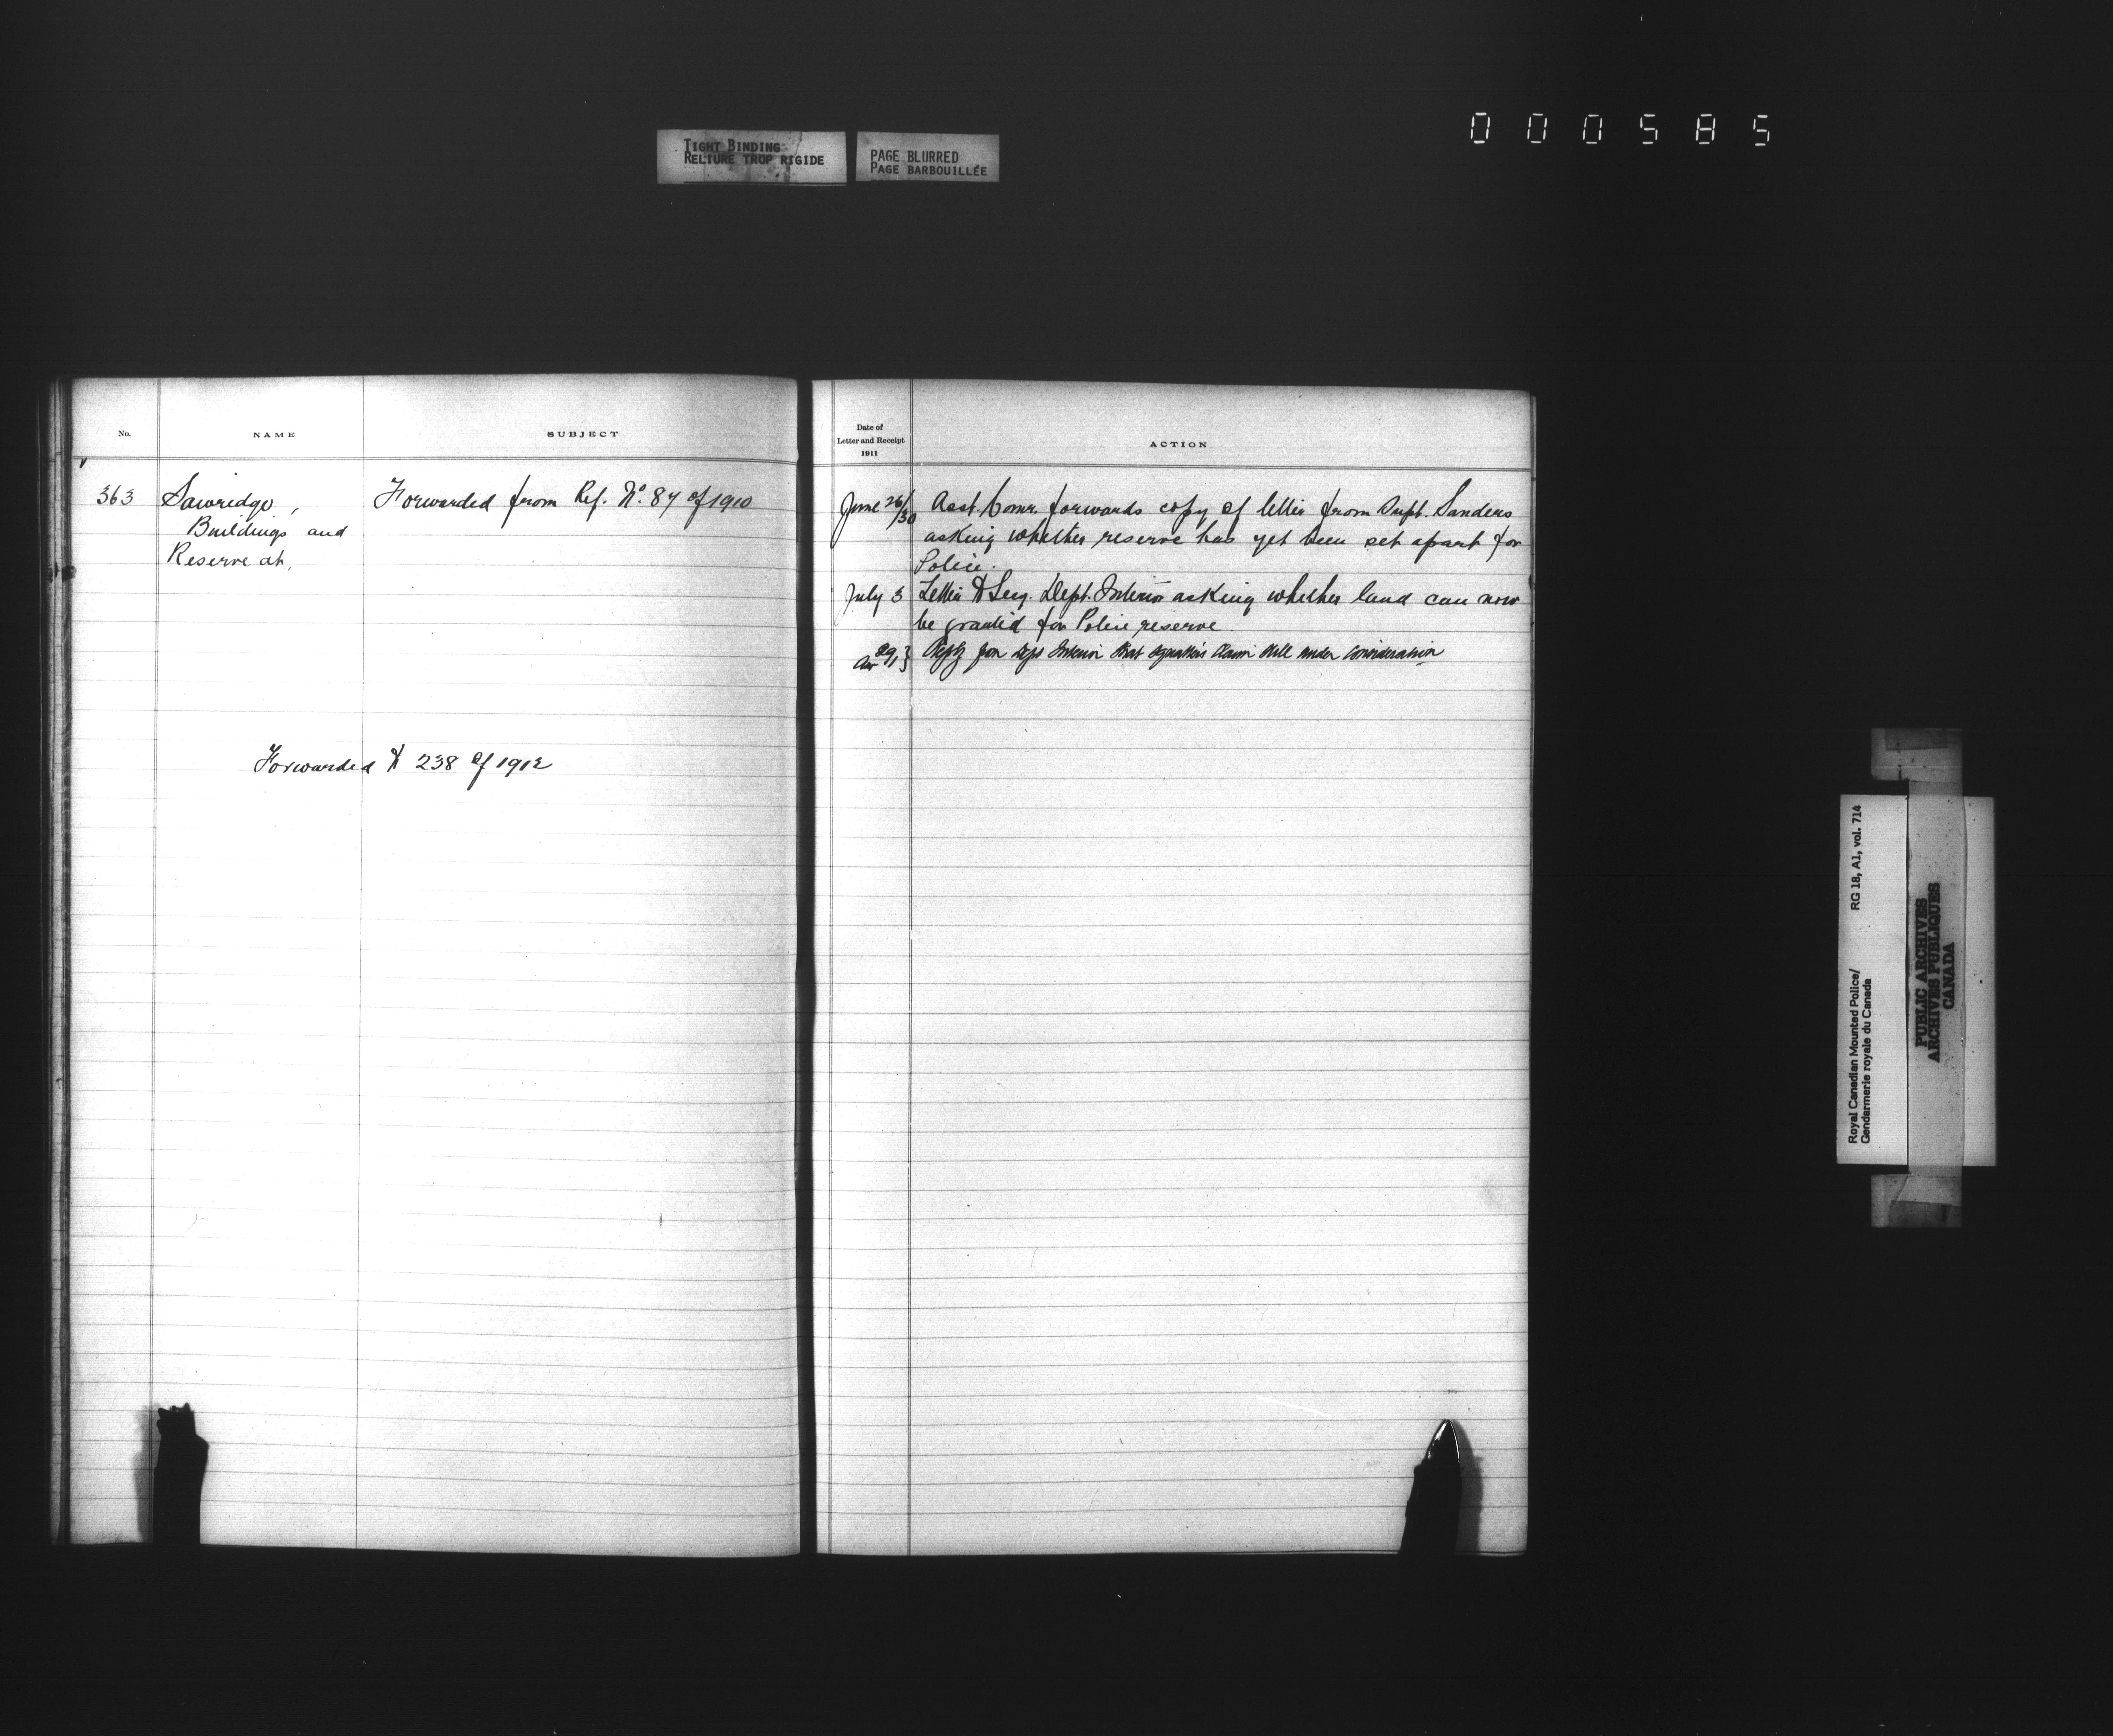 TIGHT BINDING
RELIURE TROP RIGIDE
PAGE BLURRED
PAGE BARBOUILLÉE
000585
No.
NAME
SUBJECT
363
Sawridge,
Buildings and
Reserve at,
Forwarded from Ref. No. 87 of 1910
Forwarded to 238 of 1912
Date of
Letter and Receipt
1911
ACTION
June 26/30 Asst. Comr. forwards copy of letter from Supt. Sanders
asking whether reserve has yet been set apart for
Police.
July 3 Letter to Secy. Dept. Interior asking whether land can now
be granted for Police reserve
29 Reply from Dept Interior that squatter's claim still under consideration
Royal Canadian Mounted Police/
Gendarmerie royale du Canada
RG 18, A1, vol. 714
PUBLIC ARCHIVES
ARCHIVES PUBLIQUES
CANADA